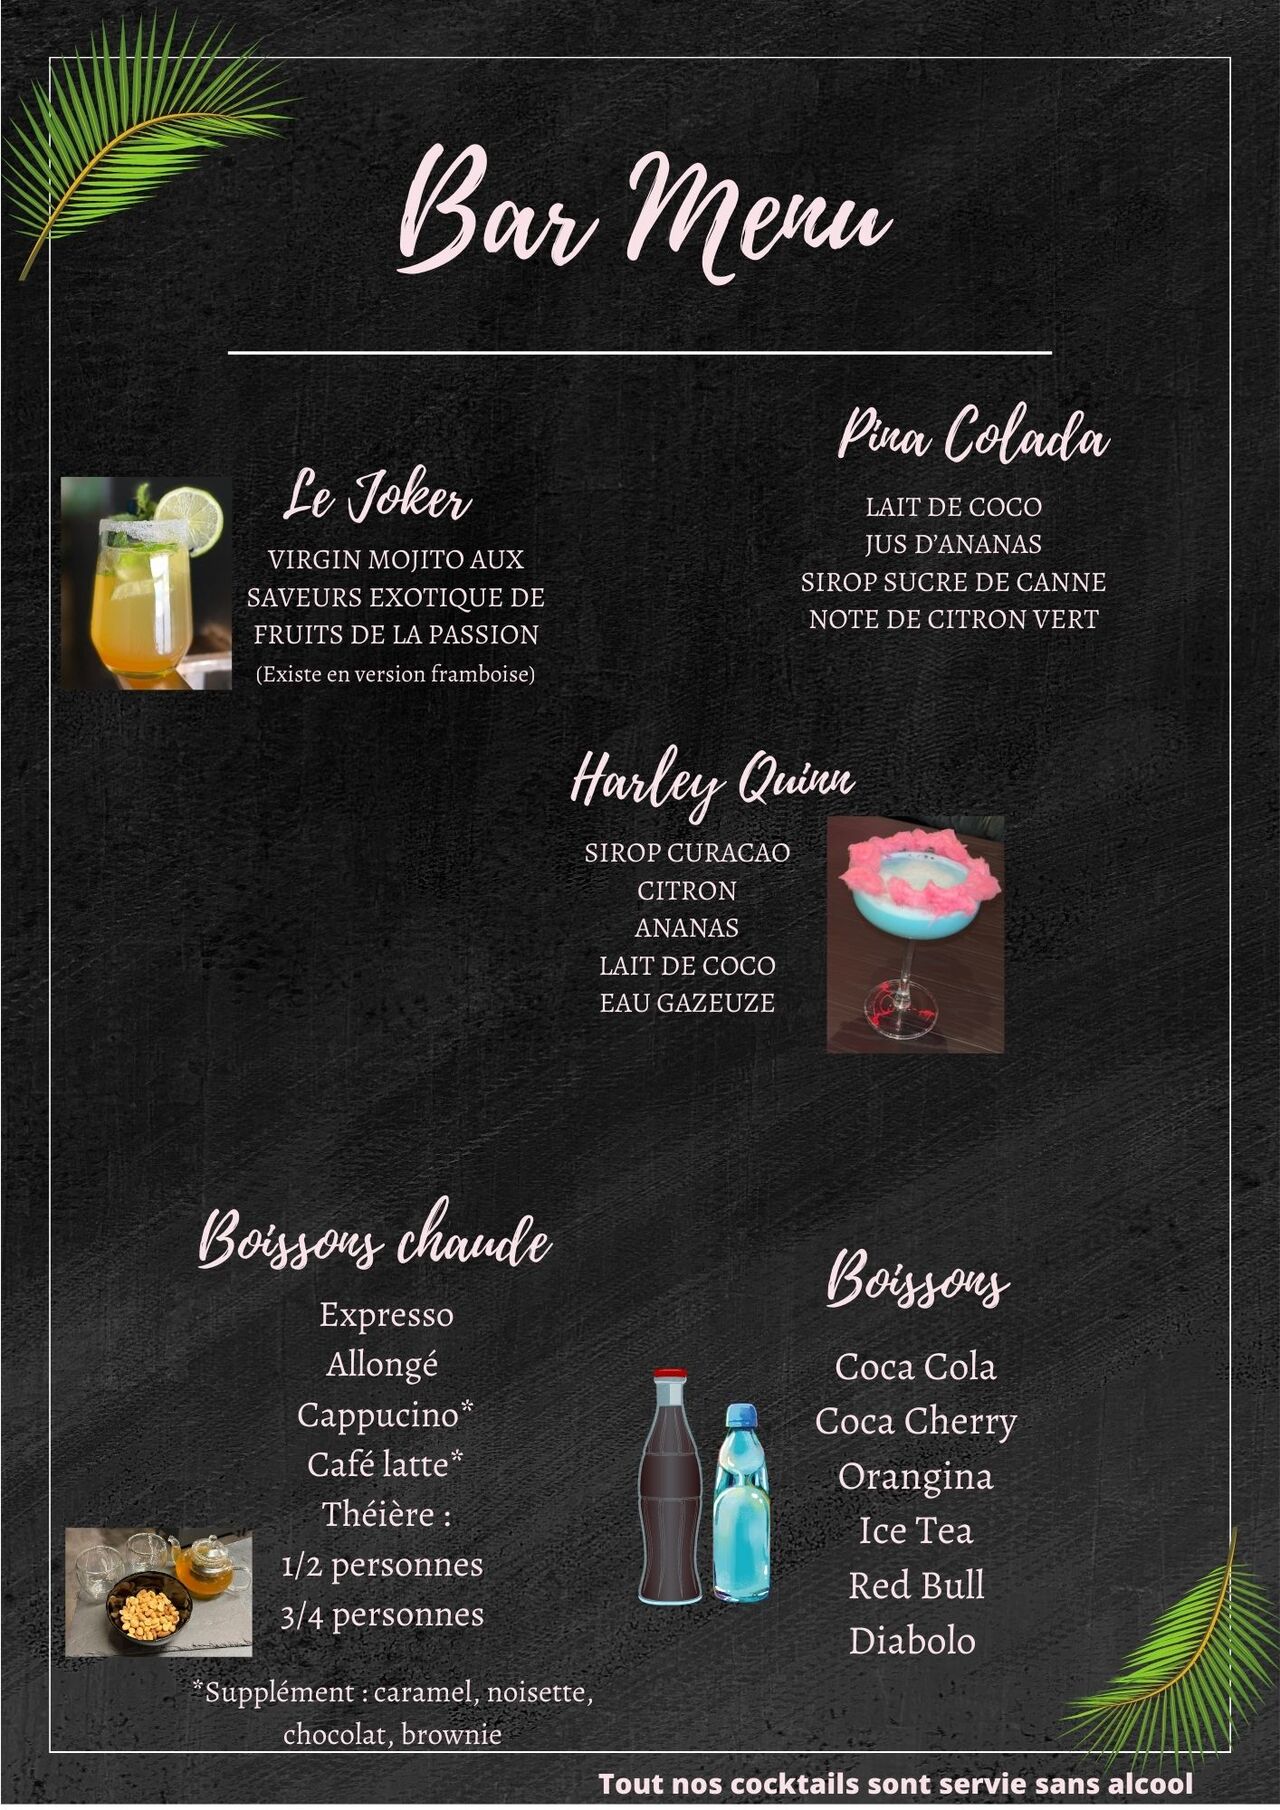 Bar Menu
Le Joker
VIRGIN MOJITO AUX
SAVEURS EXOTIQUE DE
FRUITS DE LA PASSION
(Existe en version framboise)
Pina Colada
LAIT DE COCO
JUS D’ANANAS
SIROP SUCRE DE CANNE
NOTE DE CITRON VERT
Harley Quinn
SIROP CURACAO
CITRON
ANANAS
LAIT DE COCO
EAU GAZEUZE
Boissons chaude
Expresso
Allongé
Cappucino*
Café latte*
Théière :
1/2 personnes
3/4 personnes
*Supplément : caramel, noisette,
chocolat, brownie
Boissons
Coca Cola
Coca Cherry
Orangina
Ice Tea
Red Bull
Diabolo
Tout nos cocktails sont servie sans alcool